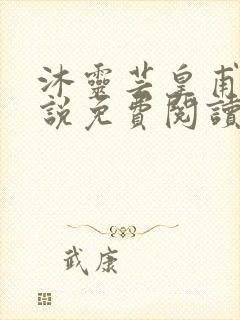 沐靈芸皇甫
說免費閱讀
武康